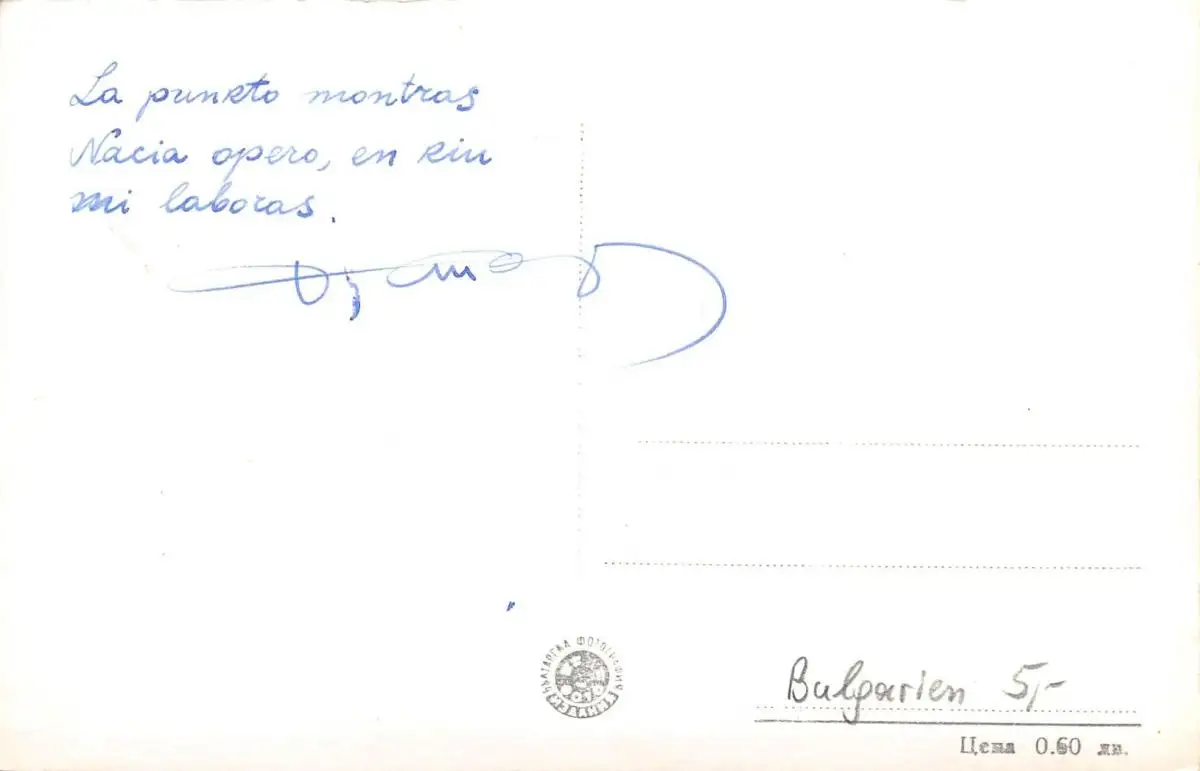 La punkto montras
Nacia opero, en kiu
mi laboras.
БЪЛГАРСКА ФОТОГРАФИЯ
Bulgarien 5,-
Цена 0.60 лв.